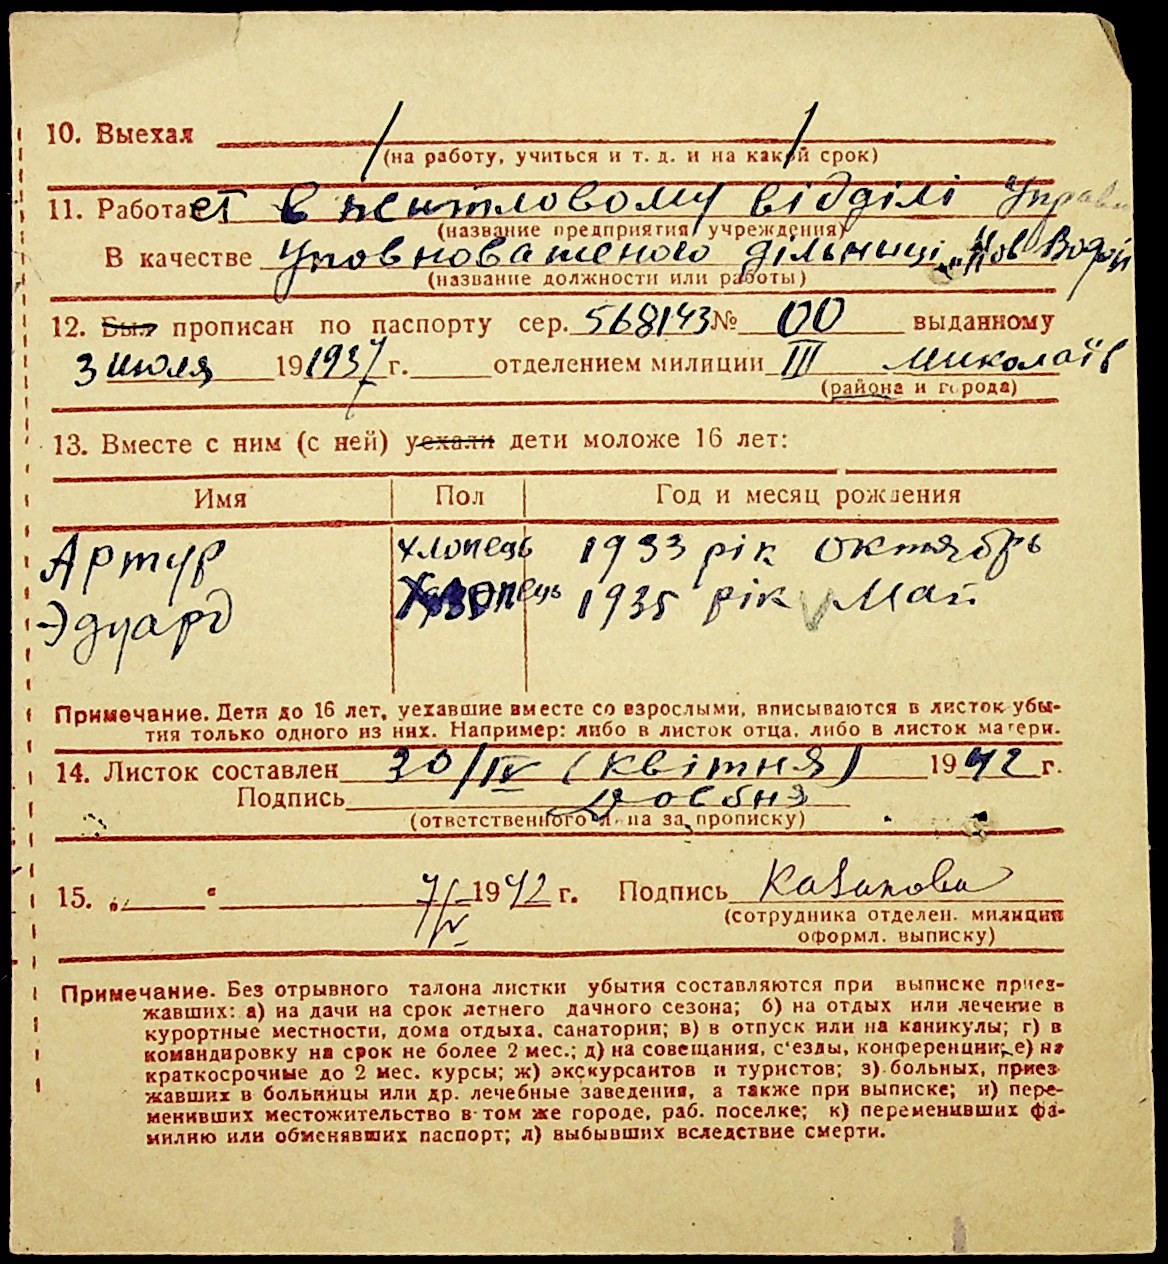 10. Выехал
(на работу, учиться и т. д. и на какой срок)
11. Работает в житловому відділі "Управи
(название предприятия учреждения)
В качестве Уповноваженого дільниці „Нов Водоп
(название должности или работы)
12. Был прописан по паспорту сер. 568143 № 00 выданному
3 июля 19 1937 г. отделением милиции III Миколаїв
(района и города)
13. Вместе с ним (с ней) уехали дети моложе 16 лет:
Имя Пол Год и месяц рождения
Артур хлопець 1933 рік октябрь
Эдуард Хлопець 1935 рік Май
Примечание. Дети до 16 лет, уехавшие вместе со взрослыми, вписываются в листок убы-
тия только одного из них. Например: либо в листок отца, либо в листок матери.
14. Листок составлен 30/IV (квітня) 1942 г.
Подпись Довбня
(ответственного лица за прописку)
15. „ “ 7/V 1942 г. Подпись Казакова
(сотрудника отделен. милиции
оформл. выписку)
Примечание. Без отрывного талона листки убытия составляются при выписке приез-
жавших: а) на дачи на срок летнего дачного сезона; б) на отдых или лечение в
курортные местности, дома отдыха, санатории; в) в отпуск или на каникулы; г) в
командировку на срок не более 2 мес.; д) на совещания, с‘езды, конференции; е) на
краткосрочные до 2 мес. курсы; ж) экскурсантов и туристов; з) больных, приез-
жавших в больницы или др. лечебные заведения, а также при выписке; и) пере-
менивших местожительство в том же городе, раб. поселке; к) переменивших фа-
милию или обменявших паспорт; л) выбывших вследствие смерти.